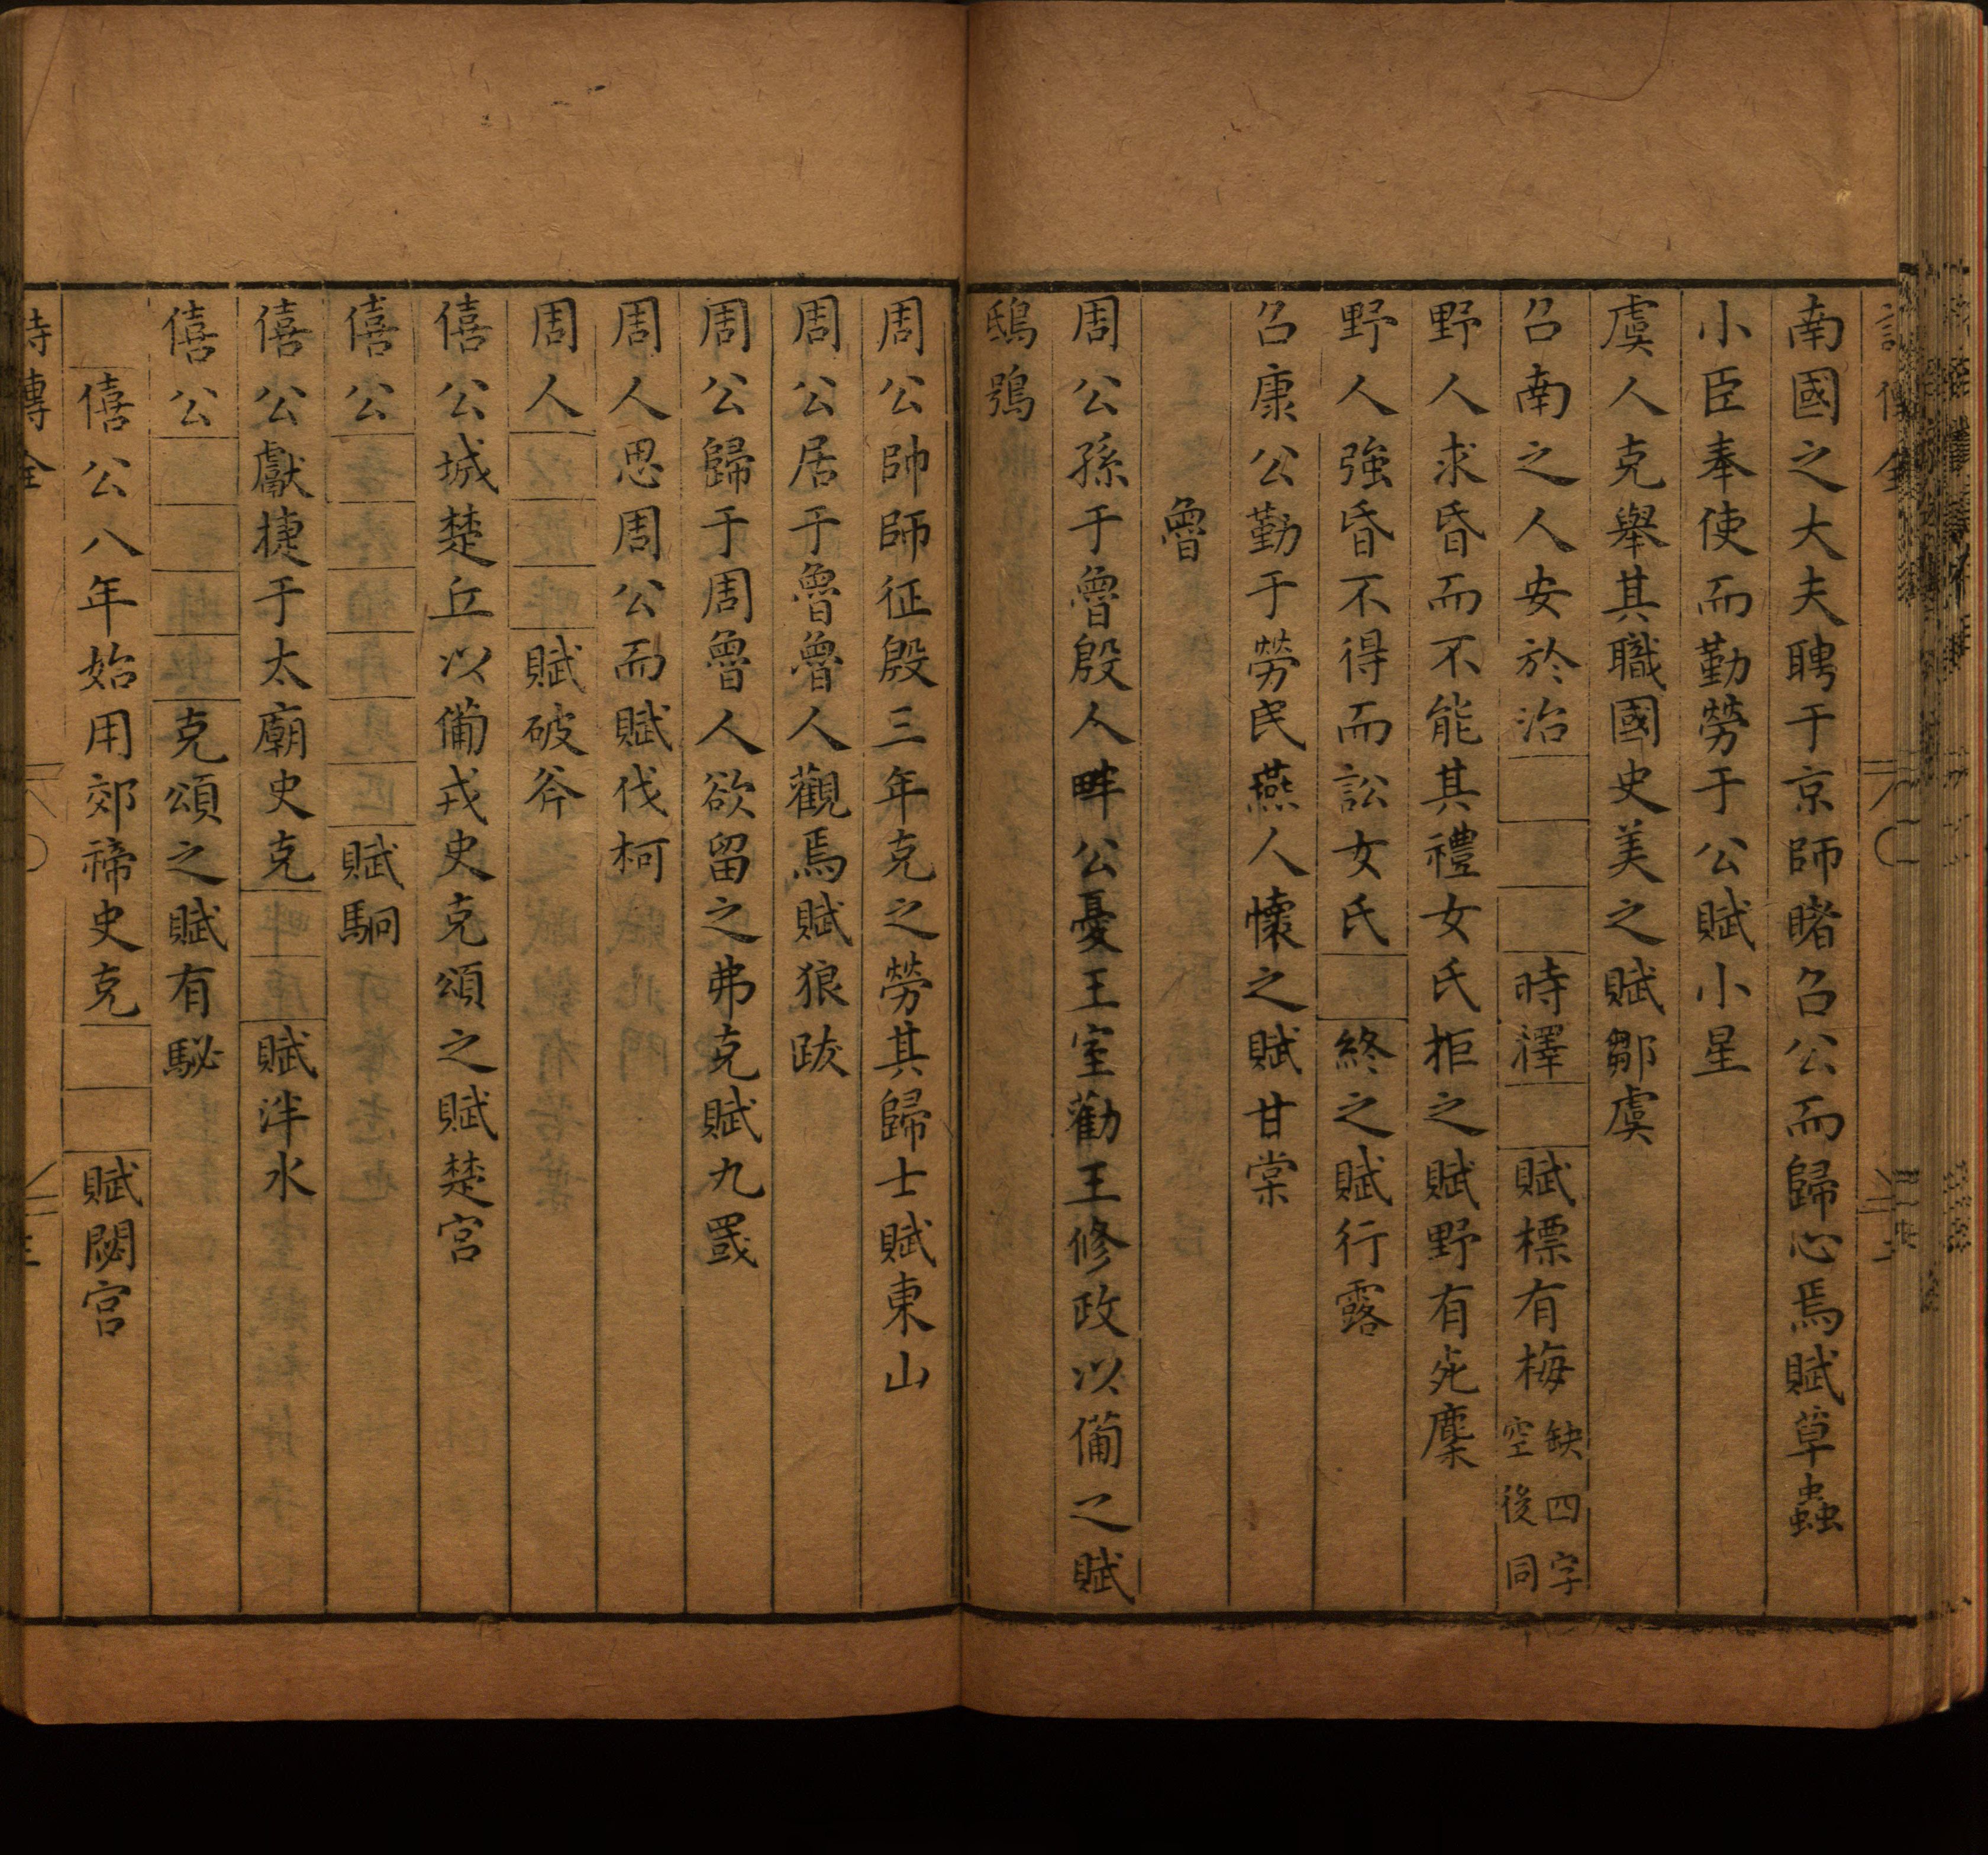 南國之大夫聘于京師睹召公而歸心焉賦草蟲
小臣奉使而勤勞于公賦小星
虞人克舉其職國史美之賦鄒虞
召南之人安於治□□□時擇□賦標有梅缺四字空後同
野人求昏而不能其禮女氏拒之賦野有死麇
野人強昏不得而訟女氏□終之賦行露
召康公勤于勞民燕人懷之賦甘棠
魯
周公孫于魯殷人畔公憂王室勸王修政以備之賦
鴟鴞
周公帥師征殷三年克之勞其歸士賦東山
周公居于魯魯人觀焉賦狼跋
周公歸于周魯人欲留之弗克賦九罭
周人思周公而賦伐柯
周人□□□賦破斧
僖公城楚丘以備戎史克頌之賦楚宮
僖公□□□□□□賦駉
僖公獻捷于太廟史克□□賦泮水
僖公□□□□克頌之賦有駜
僖公八年始用郊禘史克□□賦閟宮
詩傳全